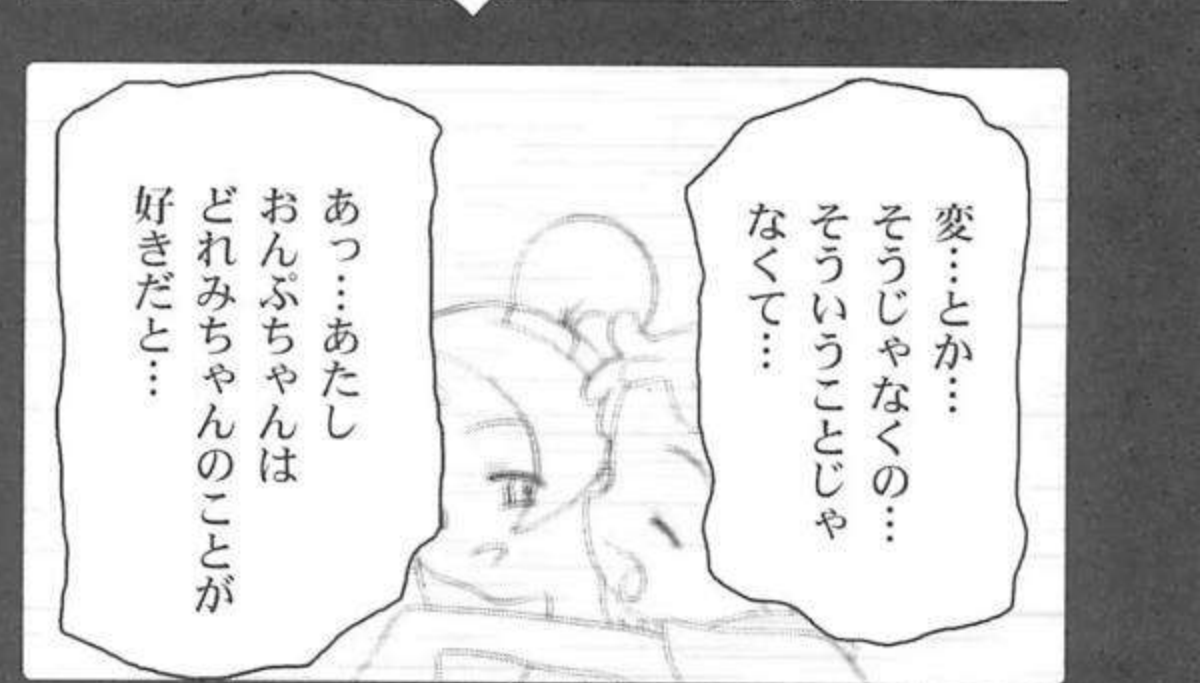 変…とか…
そうじゃなくの…
そういうことじゃ
なくて…
あっ…あたし
おんぷちゃんは
どれみちゃんのことが
好きだと…